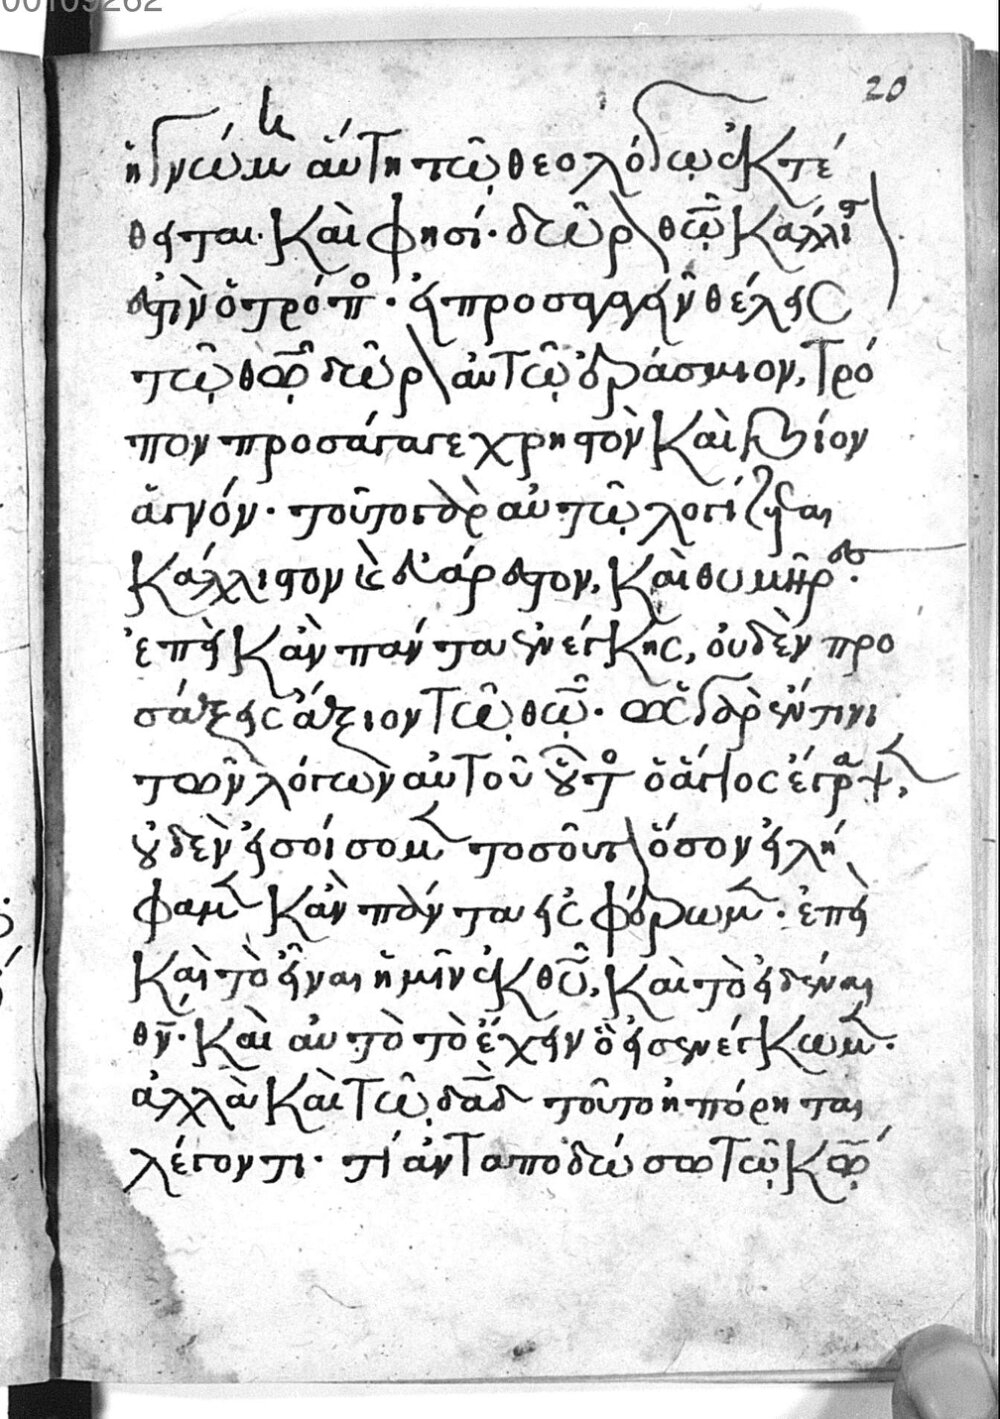 00109262
20
ἡ γνώμη αὕτη τῷ θεολόγῳ ἐκτέ
θειται· καὶ φησί· δῶρον θῷ κάλλι
στον ὁ τρόπος· εἰ προσαγαγεῖν θέλεις
τῷ θῷ δῶρον αὐτῷ ἐράσμιον, τρό
πον προσάγαγε χρηστὸν καὶ βίον
ἁγνόν· τοῦτο γὰρ αὐτῷ λογίζεται
κάλλιστον καὶ ἄριστον, καὶ θυμῆρες·
ἐπεὶ κἂν πάντα ἐνέγκῃς, οὐδὲν προ
σάξεις ἄξιον τῷ θῷ· ὡς γὰρ ἔν τινι
τῶν λόγων αὐτοῦ οὗτος ὁ ἅγιος ἔγραψεν,
οὐδὲν εἰσοίσομεν τοσοῦτον ὅσον εἰλή
φαμεν κἂν πάντα εἰσφέρωμεν· ἐπεὶ
καὶ τὸ εἶναι ἡμῖν ἐκ θῦ, καὶ τὸ εἰδέναι
θν· καὶ αὐτὸ τὸ ἔχειν ὃ εἰσενέγκωμεν·
ἀλλὰ καὶ τῷ δαδ τοῦτο ἠπόρηται
λέγοντι· τί ἀνταποδώσω τῷ κῷ